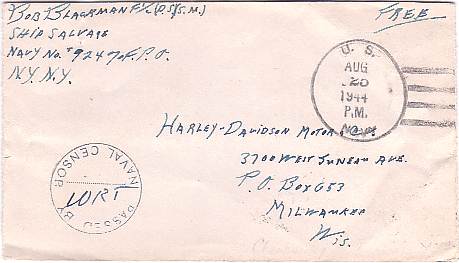 Bob Blackman F1/c (D.S/S.M.)
Ship Salvage
Navy No. 9247 F.P.O.
N.Y. N.Y.
FREE
U. S.
AUG
25
1944
P.M.
NAVY
Harley-Davidson Motor Co.
3700 West Juneau Ave.
P.O. Box 653
Milwaukee
Wis.
PASSED BY NAVAL CENSOR